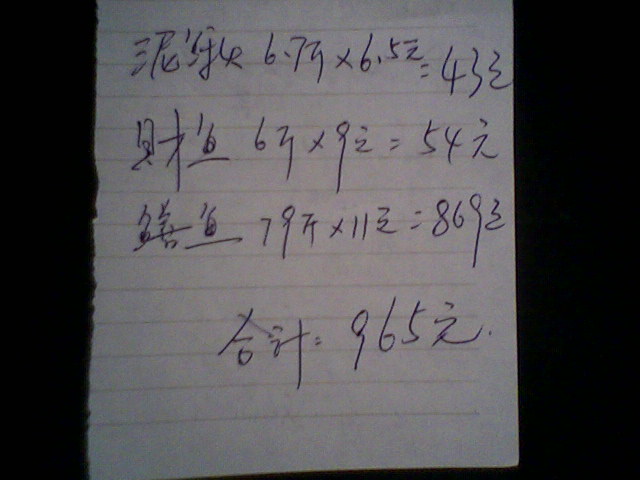 泥鳅 6.7斤×6.5元=43元
财鱼 6斤×9元=54元
鳝鱼 79斤×11元=869元
合计: 965元.